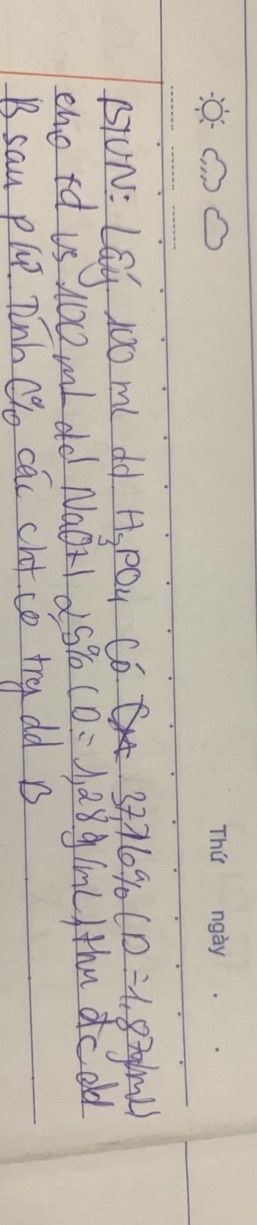 Thứ ngày
BTVN: Lấy 100 ml dd H3PO4 có 37,16% (D=1,87g/ml)
cho td vs 100 ml dd NaOH 25% (D=1,28g/ml) thu đc dd
B sau pứ. Tính C% các chất có trg dd B